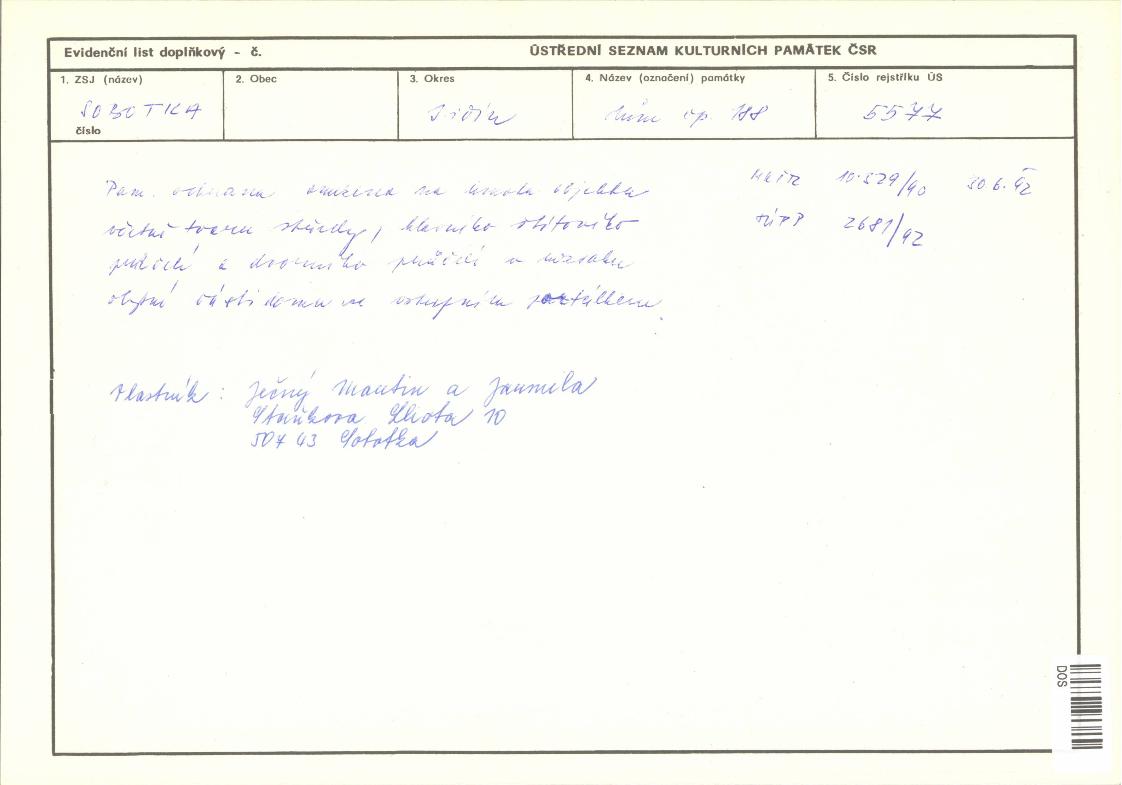 Evidenční list doplňkový - č.
ÚSTŘEDNÍ SEZNAM KULTURNÍCH PAMÁTEK ČSR
1. ZSJ (název)
2. Obec
3. Okres
4. Název (označení) památky
5. Číslo rejstříku ÚS
SOBOTKA
Jičín
dům čp 188
5577
číslo
Pam. ochrana omezena na hmotu objektu
MK ČR 10.529/90 30 6. 92
včetně tvaru střechy, hlavního štítového
SÚPP 2681/92
průčelí a dvorního průčelí v rozsahu
obytné části domu se vstupním portálkem.
Vlastník: Ječný Martin a Jarmila
Staňkova Lhota 10
507 43 Sobotka
DOS